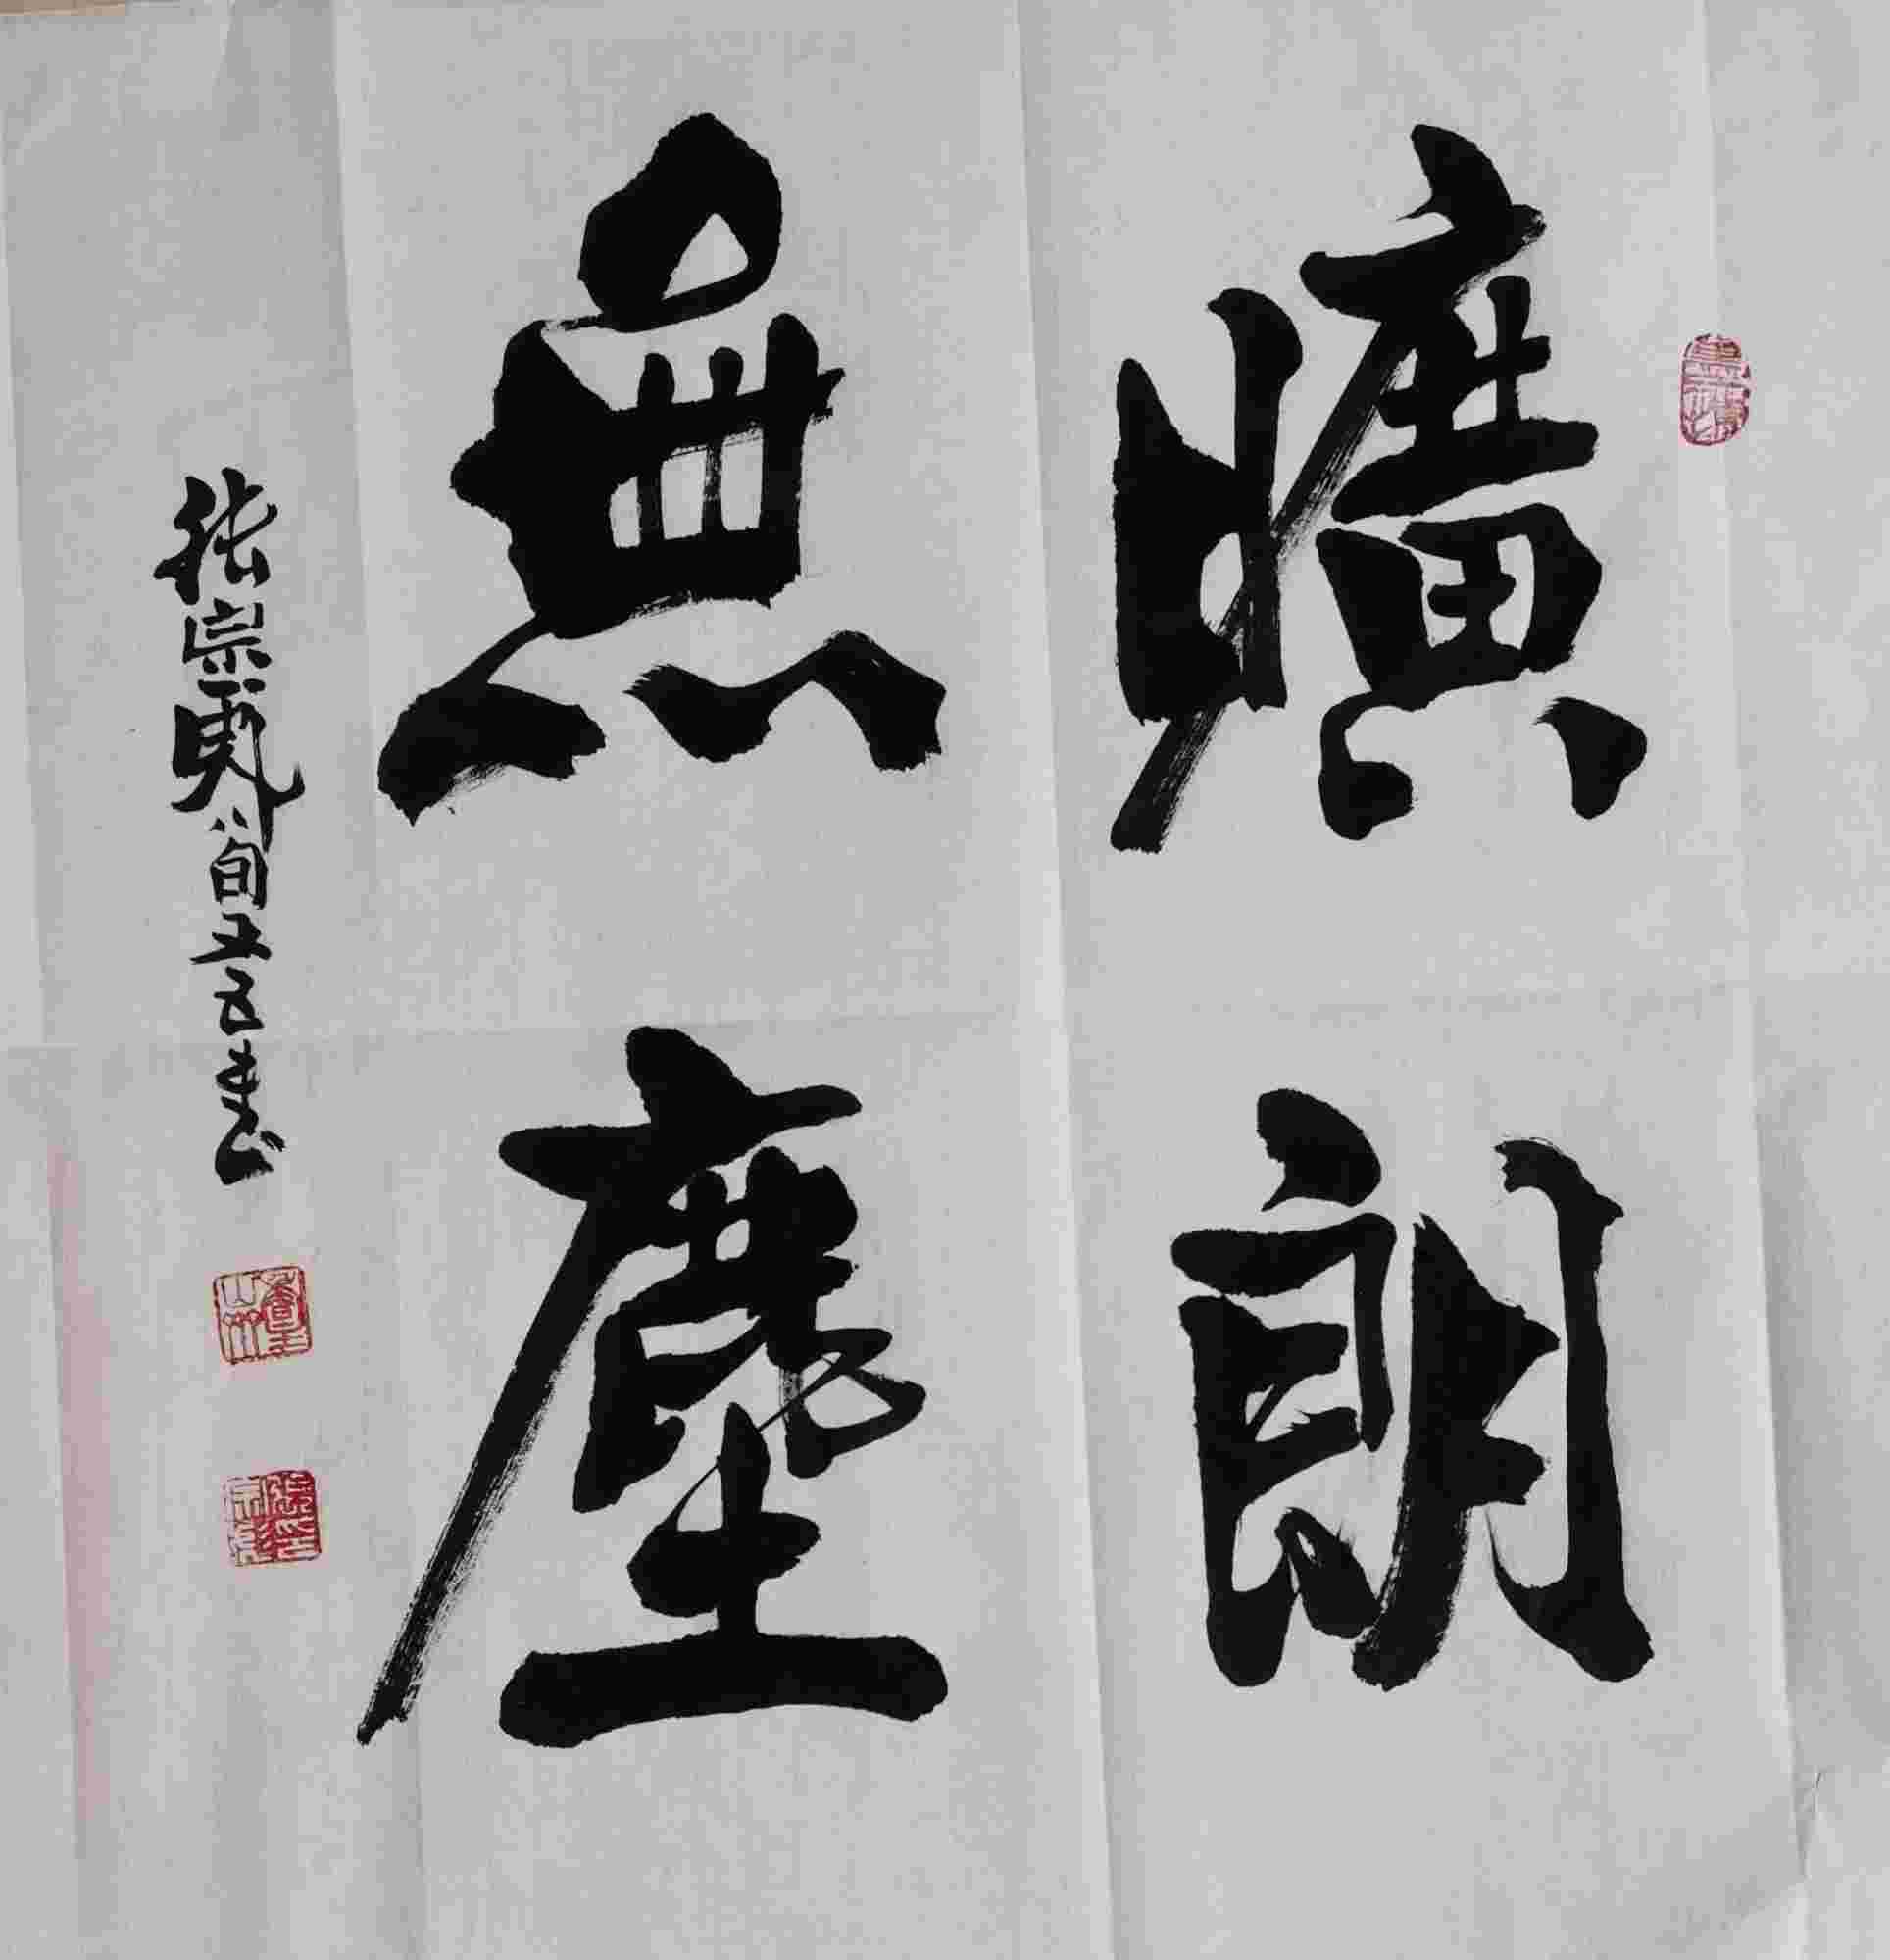 曠朗
無塵
張宗彪八旬又五書